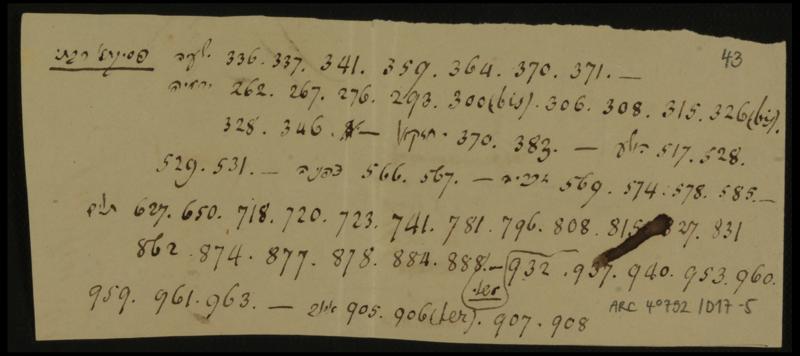 פסיקתא רבתי ישעיה 336. 337. 341. 359. 364. 370. 371. — 43
ירמיה 262. 267. 276. 293. 300(bis). 306. 308. 315. 326(bis).
328. 346. — יחזקאל 370. 383. — הושע 517. 528.
529. 531. — צפניה 566. 567. — 569. 574. 578. 585. —
תלים 627. 650. 718. 720. 723. 741. 781. 796. 808. 815. 827. 831
862. 874. 877. 878. 884. 888. — 932. 937. 940. 953. 960.
959. 961. 963. — איוב 905. 906(ter). 907. 908
ARC 4°792 / D17-5